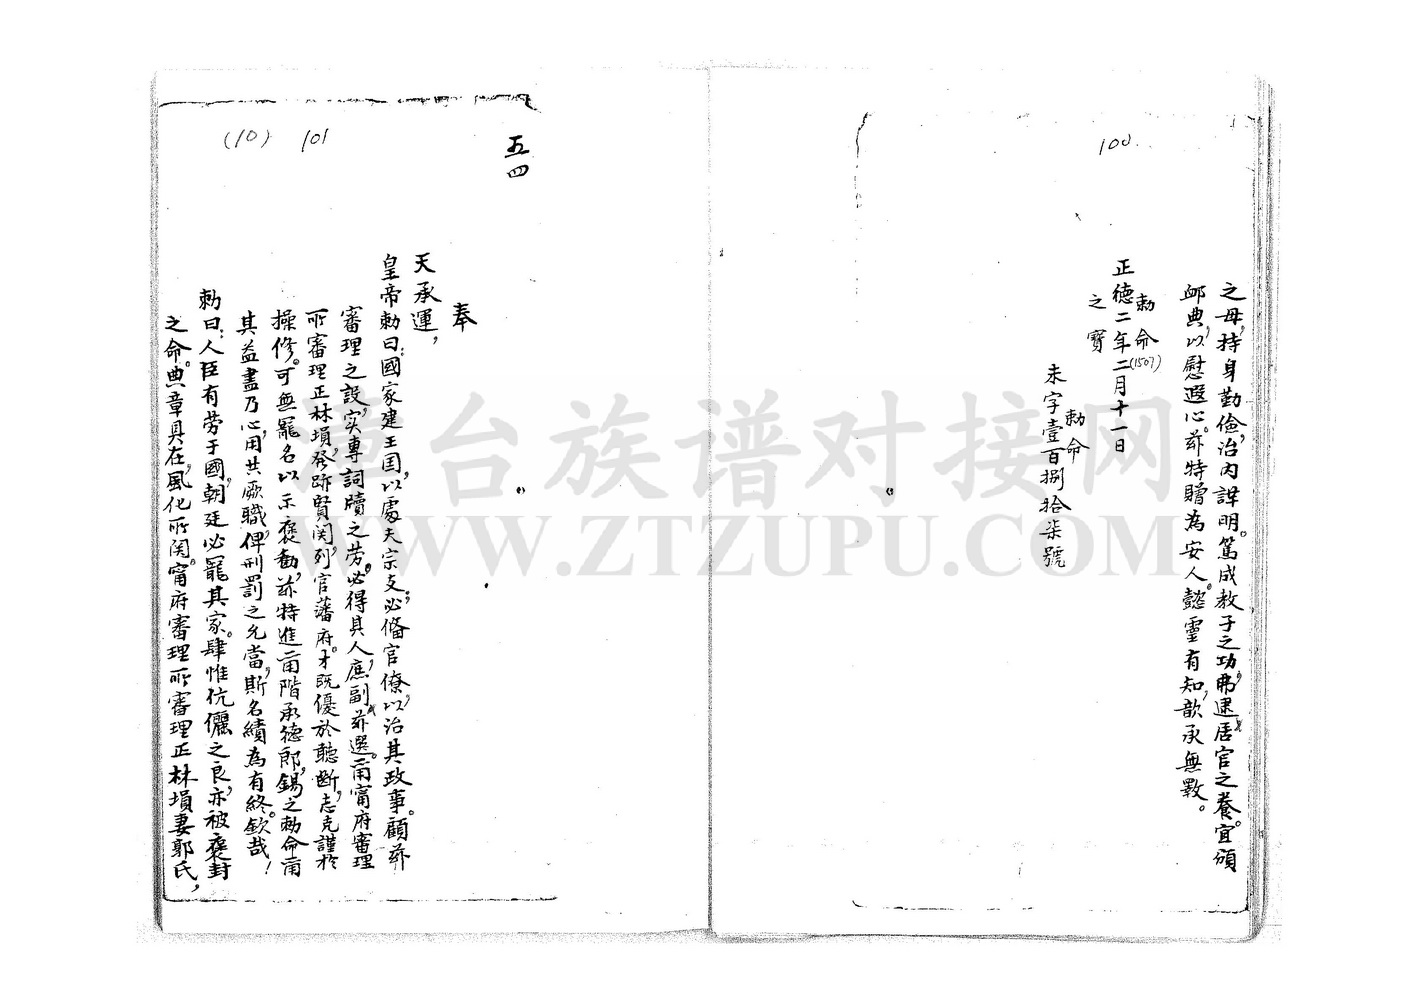 100
之母，持身勤儉，治內詳明。篤成教子之功，弗逮居官之養。宜頒
卹典，以慰遐心。茲特贈為安人，懿靈有知，歆承無斁。
敕命
正德二年二月十一日
(1507)
之寶
敕命
未字壹百捌拾柒號
五四
101
(10)
奉
天承運，
皇帝敕曰：國家建王囯，以處天宗支；必脩官僚，以治其政事。顧茲
審理之設，实專詞牘之劳。必得其人，庶副茲選。爾甯府審理
所審理正林塤，發跡賢関，列官藩府。才既優於聽斷，志克謹於
操修。可無寵名以示褒勸，茲特進爾階承德郎，錫之敕命。爾
其益盡乃心，用共厥職，俾刑罰之允當，斯名績為有終。欽哉！
敕曰：人臣有劳于國，朝廷必寵其家。肆惟伉儷之良，亦被褒封
之命。典章具在，風化所関。甯府審理所審理正林塤妻郭氏，
臺台族谱对接网
WWW.ZTZUPU.COM